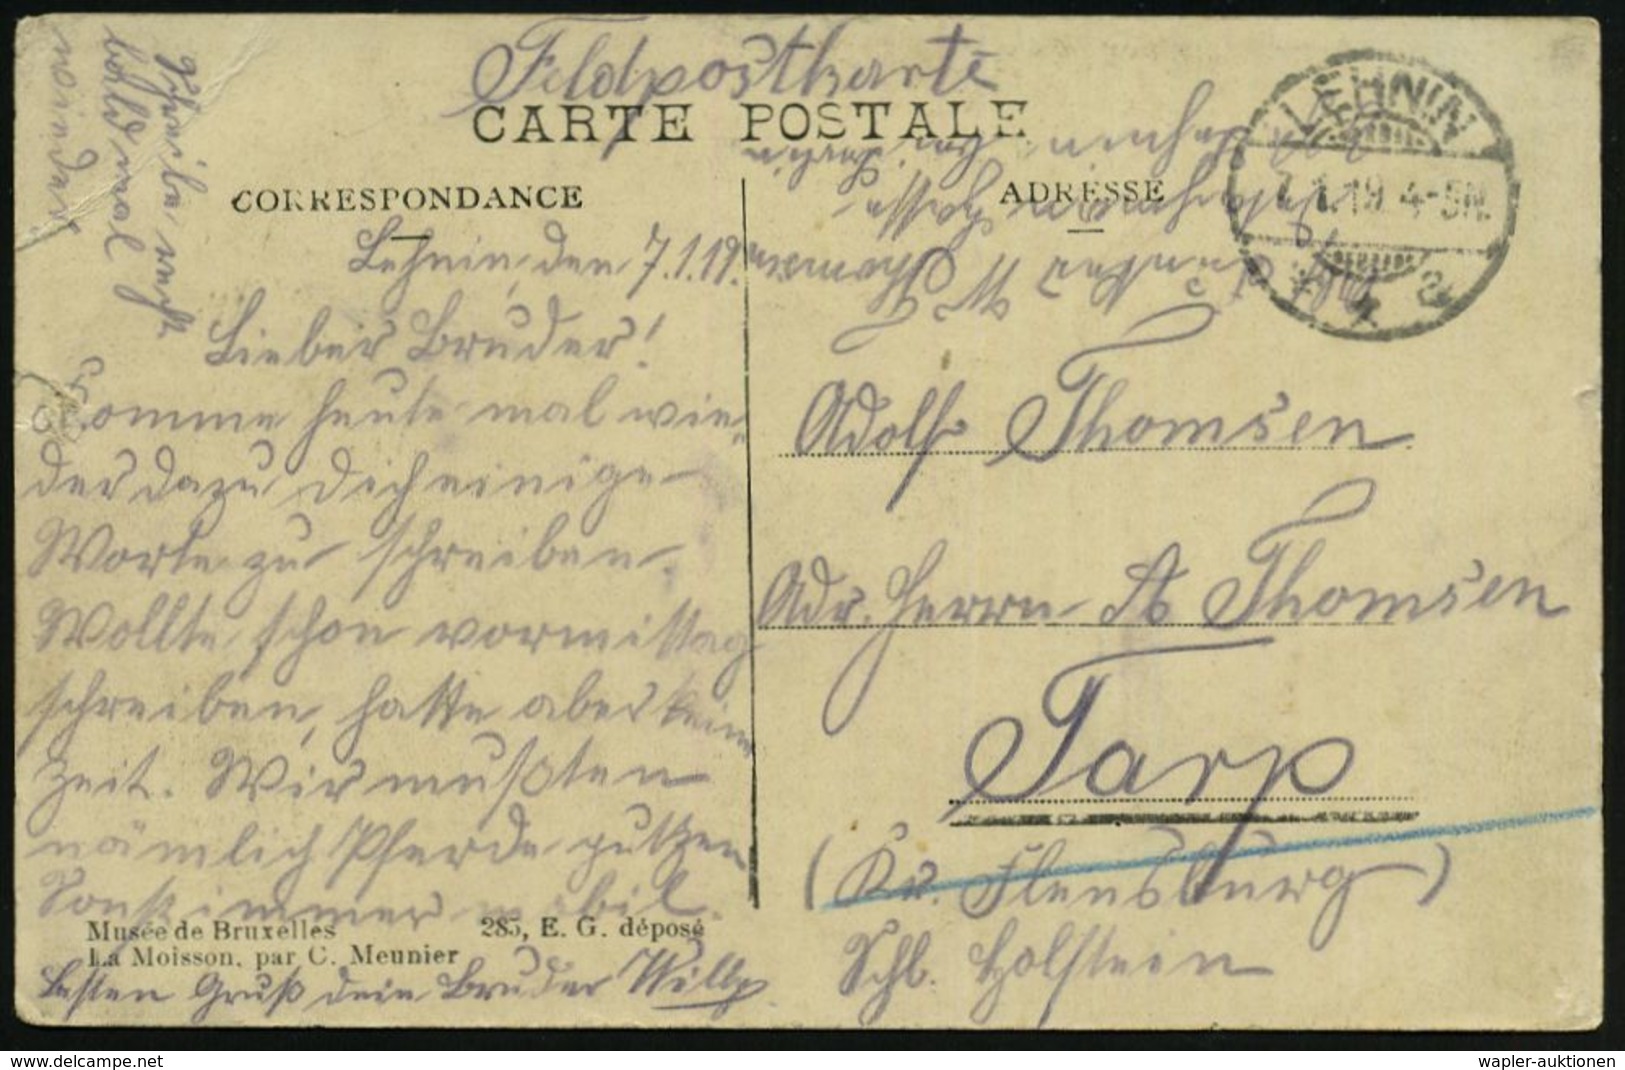 Feldpostkarte
CARTE POSTALE
CORRESPONDANCE
ADRESSE
LEHNIN
7.1.19. 4-5N.
* * a
Schreibe recht
bald mal
wieder
Lehnin, den 7.1.19.
Lieber Bruder!
Komme heute mal wie-
der dazu Dich einige
Worte zu schreiben.
Wollte schon vormittag
schreiben, hatte aber keine
Zeit. Wir mußten
nämlich Pferde putzen
Sonst immer mobil.
Besten Gruß dein Bruder Willy
Musée de Bruxelles
285, E. G. déposé
La Moisson, par C. Meunier
Thomsen
Lehnin
Adolf Thomsen
Adr. Herrn A Thomsen
Tarp
(Kr. Flensburg)
Schl. Holstein
delcampe.net
wapler-auktionen